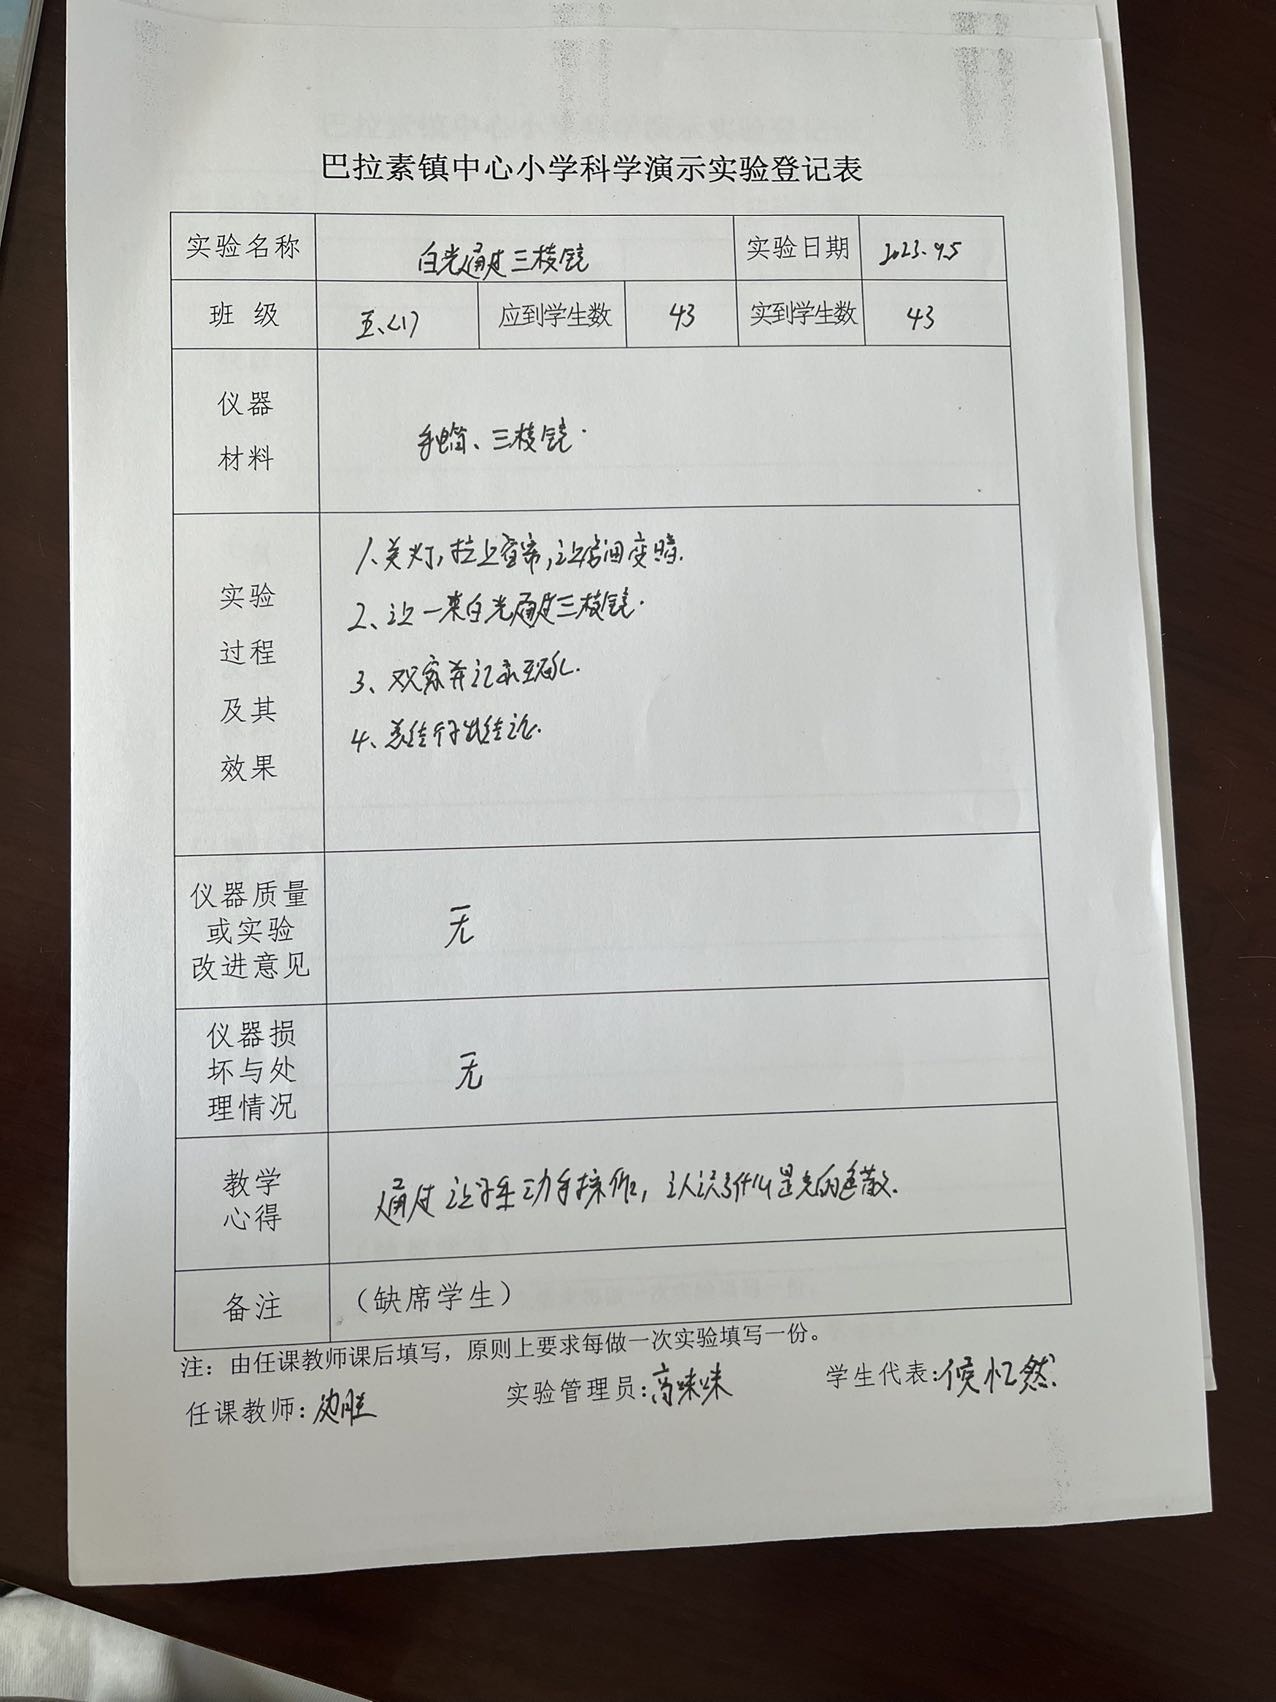 巴拉素镇中心小学科学演示实验登记表
实验名称 白光通过三棱镜 实验日期 2023.9.5
班 级 五、(1) 应到学生数 43 实到学生数 43
仪器
材料
手电筒、三棱镜.
实验
过程
及其
效果
1、关灯,拉上窗帘,让房间变暗.
2、让一束白光通过三棱镜.
3、观察并记录现象.
4、总结得出结论.
仪器质量
或实验
改进意见
无
仪器损
坏与处
理情况
无
教学
心得
通过让学生动手操作,认识了什么是光的色散.
备注 (缺席学生)
注：由任课教师课后填写，原则上要求每做一次实验填写一份。
任课教师: 实验管理员: 高咪咪 学生代表: 侯忆然